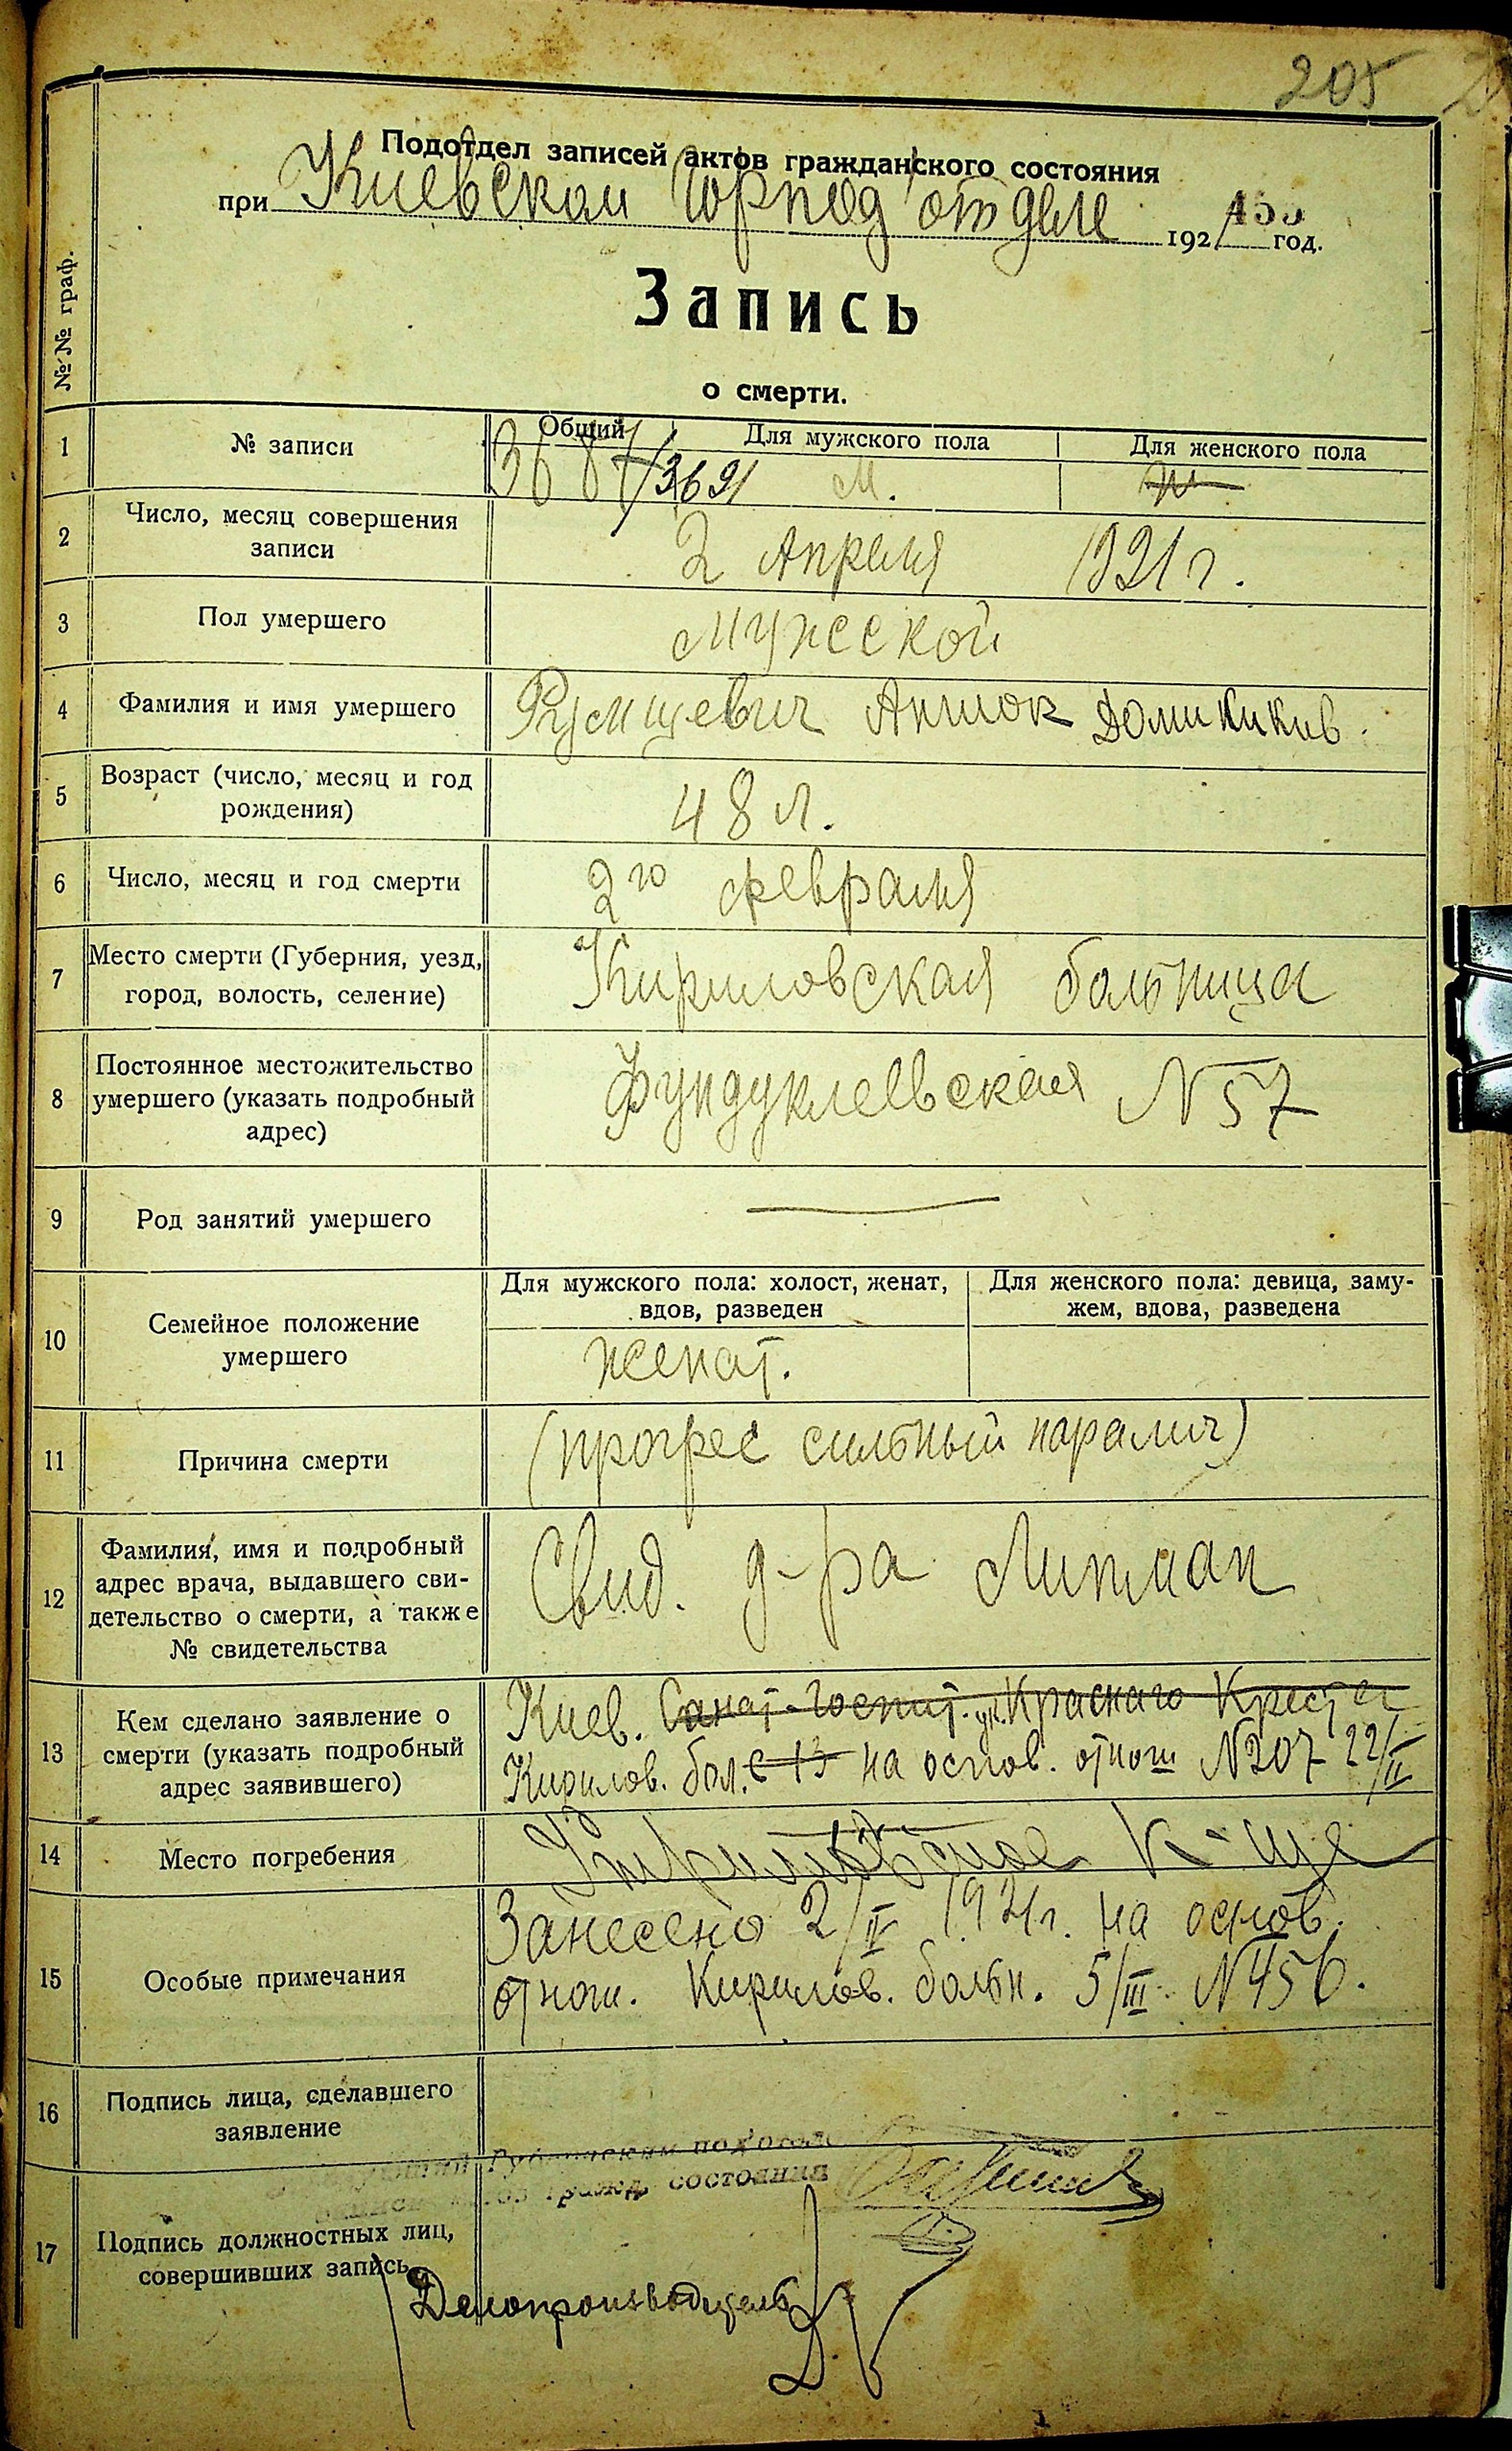 205
Подотдел записей актов гражданского состояния
при Киевском Горпод'отделе 1921 год.
Запись
о смерти.
№ № граф.
1 № записи Общий Для мужского пола Для женского пола
3691 М.
2 Число, месяц совершения
записи
2 Апреля 1921 г.
3 Пол умершего мужской
4 Фамилия и имя умершего Домиников.
5 Возраст (число, месяц и год
рождения)
48 л.
6 Число, месяц и год смерти 2го февраля
7 Место смерти (Губерния, уезд,
город, волость, селение)
Кириловская больница
8 Постоянное местожительство
умершего (указать подробный
адрес)
Фундуклеевская N 57
9 Род занятий умершего
10 Семейное положение
умершего
Для мужского пола: холост, женат,
вдов, разведен
Для женского пола: девица, заму-
жем, вдова, разведена
женат.
11 Причина смерти (прогрес сильный паралич)
12 Фамилия, имя и подробный
адрес врача, выдавшего сви-
детельство о смерти, а также
№ свидетельства
Свид. д-ра Липман
13 Кем сделано заявление о
смерти (указать подробный
адрес заявившего)
Киев. Санат-Госпит. Краснаго Креста
Кирилов. бол. на основ. отнош N207 22/II
14 Место погребения Кириловское к-ще
15 Особые примечания
Занесено 2/IV 1921г. на основ.
отнош. Кирилов. больн. 5/III N456.
16 Подпись лица, сделавшего
заявление
под'отдел
гражд. состояния
17 Подпись должностных лиц,
совершивших запись
Делопроизводитель